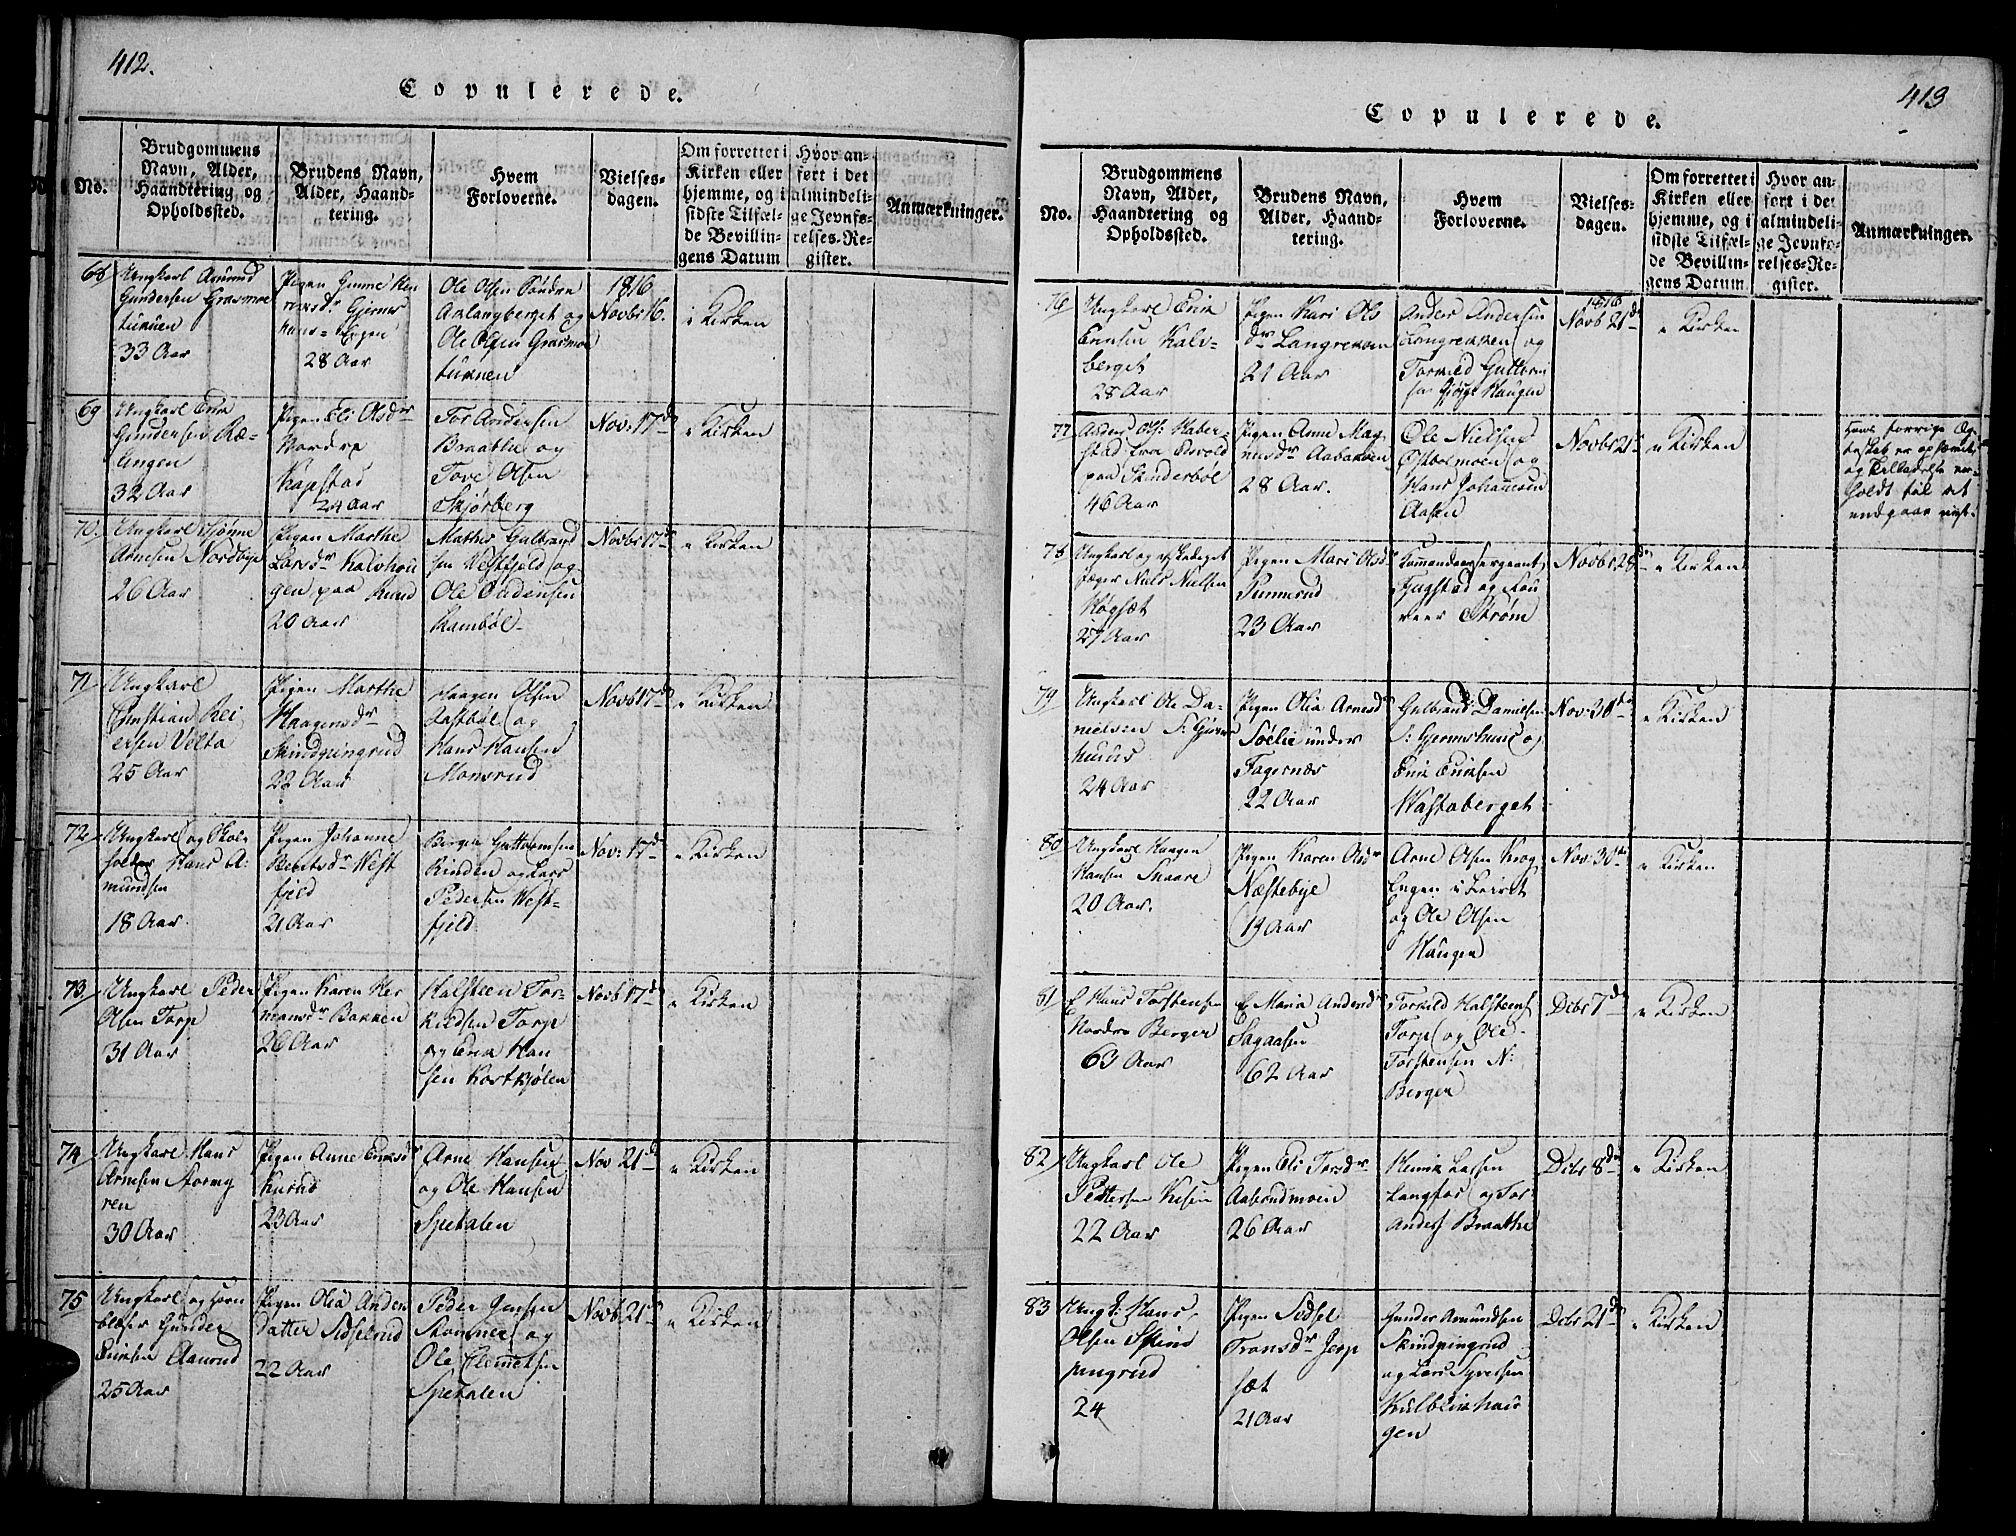 412.
Copulerede.
No.
Brudgommens Navn, Alder, Haandtering og Opholdssted.
Brudens Navn, Alder, Haandtering.
Hvem Forloverne.
Vielsesdagen.
Om forrettet i Kirken eller hjemme, og i sidste Tilfælde Bevillingens Datum
Hvor anført i det almindelige Jevnførelses-Register.
Anmærkninger.
68
Ungkarl Amund
Gundersen Grasmoe
tunen
33 Aar
Pigen Gunne Hen
Gjerms
huus
28 Aar
Ole Olsen Søndre
Aslangberget og
Ole Olsen Grasmoe
tunen
1816
Novbr 16.
i Kirken
69
Ungkarl Erik
Gundersen Ræ-
lingen
32 Aar
Pigen Eli Olsdr
Nordre
Kapstad
24 Aar
Tor Andersen
Braathe og
Tove Olsen
Skjørberg
Nov: 17de
i Kirken
70.
Ungkarl
Arnesen Nordbye
26 Aar
Pigen Marthe
Larsdr Kalvhou
gen paa
20 Aar
Mathis Gulbrand
sen Westfjeld og
Ole
Rambøl
Novbr 17de
i Kirken
71
Ungkarl
Christian Rei
ersen Velta
25 Aar
Pigen Marthe
Haagensdr
Skindpungrud
22 Aar
Haagen Olsen
og
Hans Hansen
Monsrud
Novb 17de
i Kirken
72
Ungkarl og Skol
holder Hans A-
mundsen
18 Aar
Pigen Johanne
West
fjeld
21 Aar
Børger Guttormsen
Rinden og Lars
Pedersen West-
fjeld
Nov: 17de
i Kirken
73
Ungkarl Peder
Olsen Torp
31 Aar
Pigen Karen Her
mansdr Bakken
26 Aar
Halsteen Tor-
kildsen Torp
og Erik Han
sen Kortkjølen
Novb 17de
i Kirken
74
Ungkarl Hans
Arnesen Stormy
ren
30 Aar
Pigen Anne Eriksdr
23 Aar
Arne Hansen
og Ole Hansen
Spetalen
Nov 21de
i Kirken
75
Ungkarl og horn
blæser Gunder
Eriksen Aamod
25 Aar
Pigen Olia Anders
datter Sidselrud
22 Aar
Peder Jensen
Stommer og
Ole Clemetsen
Spetalen
Novb 21de
i Kirken
413
Copulerede.
No.
Brudgommens Navn, Alder, Haandtering og Opholdssted.
Brudens Navn, Alder, Haandtering.
Hvem Forloverne.
Vielsesdagen.
Om forrettet i Kirken eller hjemme, og i sidste Tilfælde Bevillingens Datum
Hvor anført i det almindelige Jevnførelses-Register.
Anmærkninger.
76
Ungkarl Erik
Ericksen Kalv-
berget
28 Aar
Pigen Kari Ols
dr Langrekken
21 Aar
Anders Andersen
Langrekken og
Torkild Guttorm
sen Haugen
1816
Novb 21de
i Kirken
77
Anders Ols: Haber-
stad fra Edsvold
paa Skinderbøl
46 Aar
Pigen Anne Mag
nusdr Aabakken
28 Aar.
Ole Nielsen
Østbolmoen og
Hans Johansen
Aasen
Novbr 21de
i Kirken
Hans forrige Æg
teskab er ophævet,
og Tilladelse er-
holdt til at
indgaae nyt.
78
Ungkarl og afskediget
Jæger Niels Nielsen
Høgsæt
27 Aar
Pigen Mari Olsdr
Sunnerud
23 Aar
Comandeersergeant
Fjugstad og Fou
reer Strøm
Novbr 28de
i Kirken
79
Ungkarl Ole Da-
nielsen S: Gjerms
huus
24 Aar
Pigen Olia Arnesdr
Solie under
Fagernæs
22 Aar
Gulbrand Danielsen
S: Gjermshuus og
Erik Eriksen
Wastaberget
Nov: 30te
i Kirken
80
Ungkarl Haagen
Hansen Snaare
20 Aar.
Pigen Karen Olsdr
Næstebye
19 Aar
Arne Olsen Krog
Engen i Leiret
og Ole Olsen
Haugen
Nov: 30te
i Kirken
81
E Hans Torstensen
Nordre Berger
63 Aar
E Maria Andersdr
Sagaasen
62 Aar
Torkild Halsteens
Torp og Ole
Torstensen N:
Berger
Debr 7de
i Kirken
82
Ungkarl Ole
Pettersen
22 Aar
Pigen Eli Torsdr
Aaserudmoen
26 Aar
Henrik Larsen
Langfos og Tor
Anders: Braathe
Debr 8de
i Kirken
83
Ungk: Hans
Olsen Skind
pungrud
24
Pigen Sidsel
Fransdr Jerp
sæt
21 Aar
Gunder Amundsen
Skindpungrud
og Lars Syversen
Kulblikhau
gen
Debr 21de
i Kirken